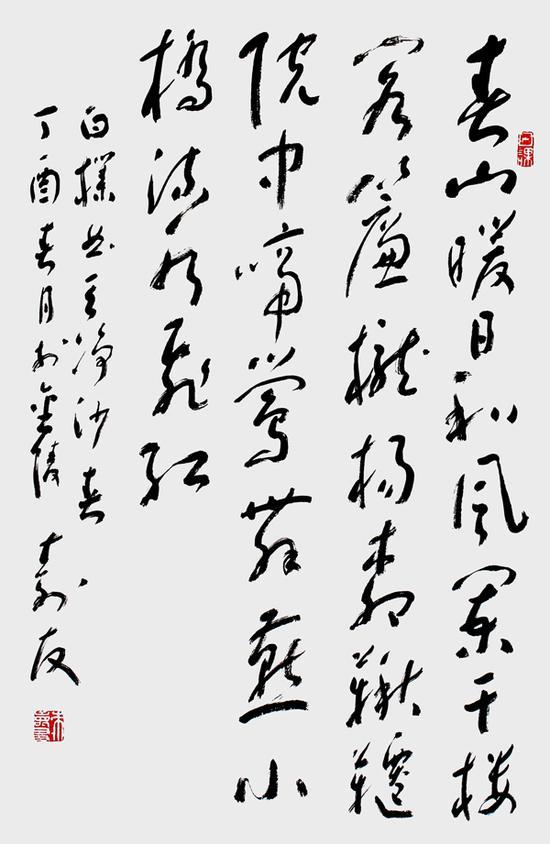 春山暖日和風闌干樓
閣簾櫳楊柳鞦韆
院中啼鶯舞燕小
橋流水飛紅
白樸曲天淨沙春
丁酉春月於金陵 壽友